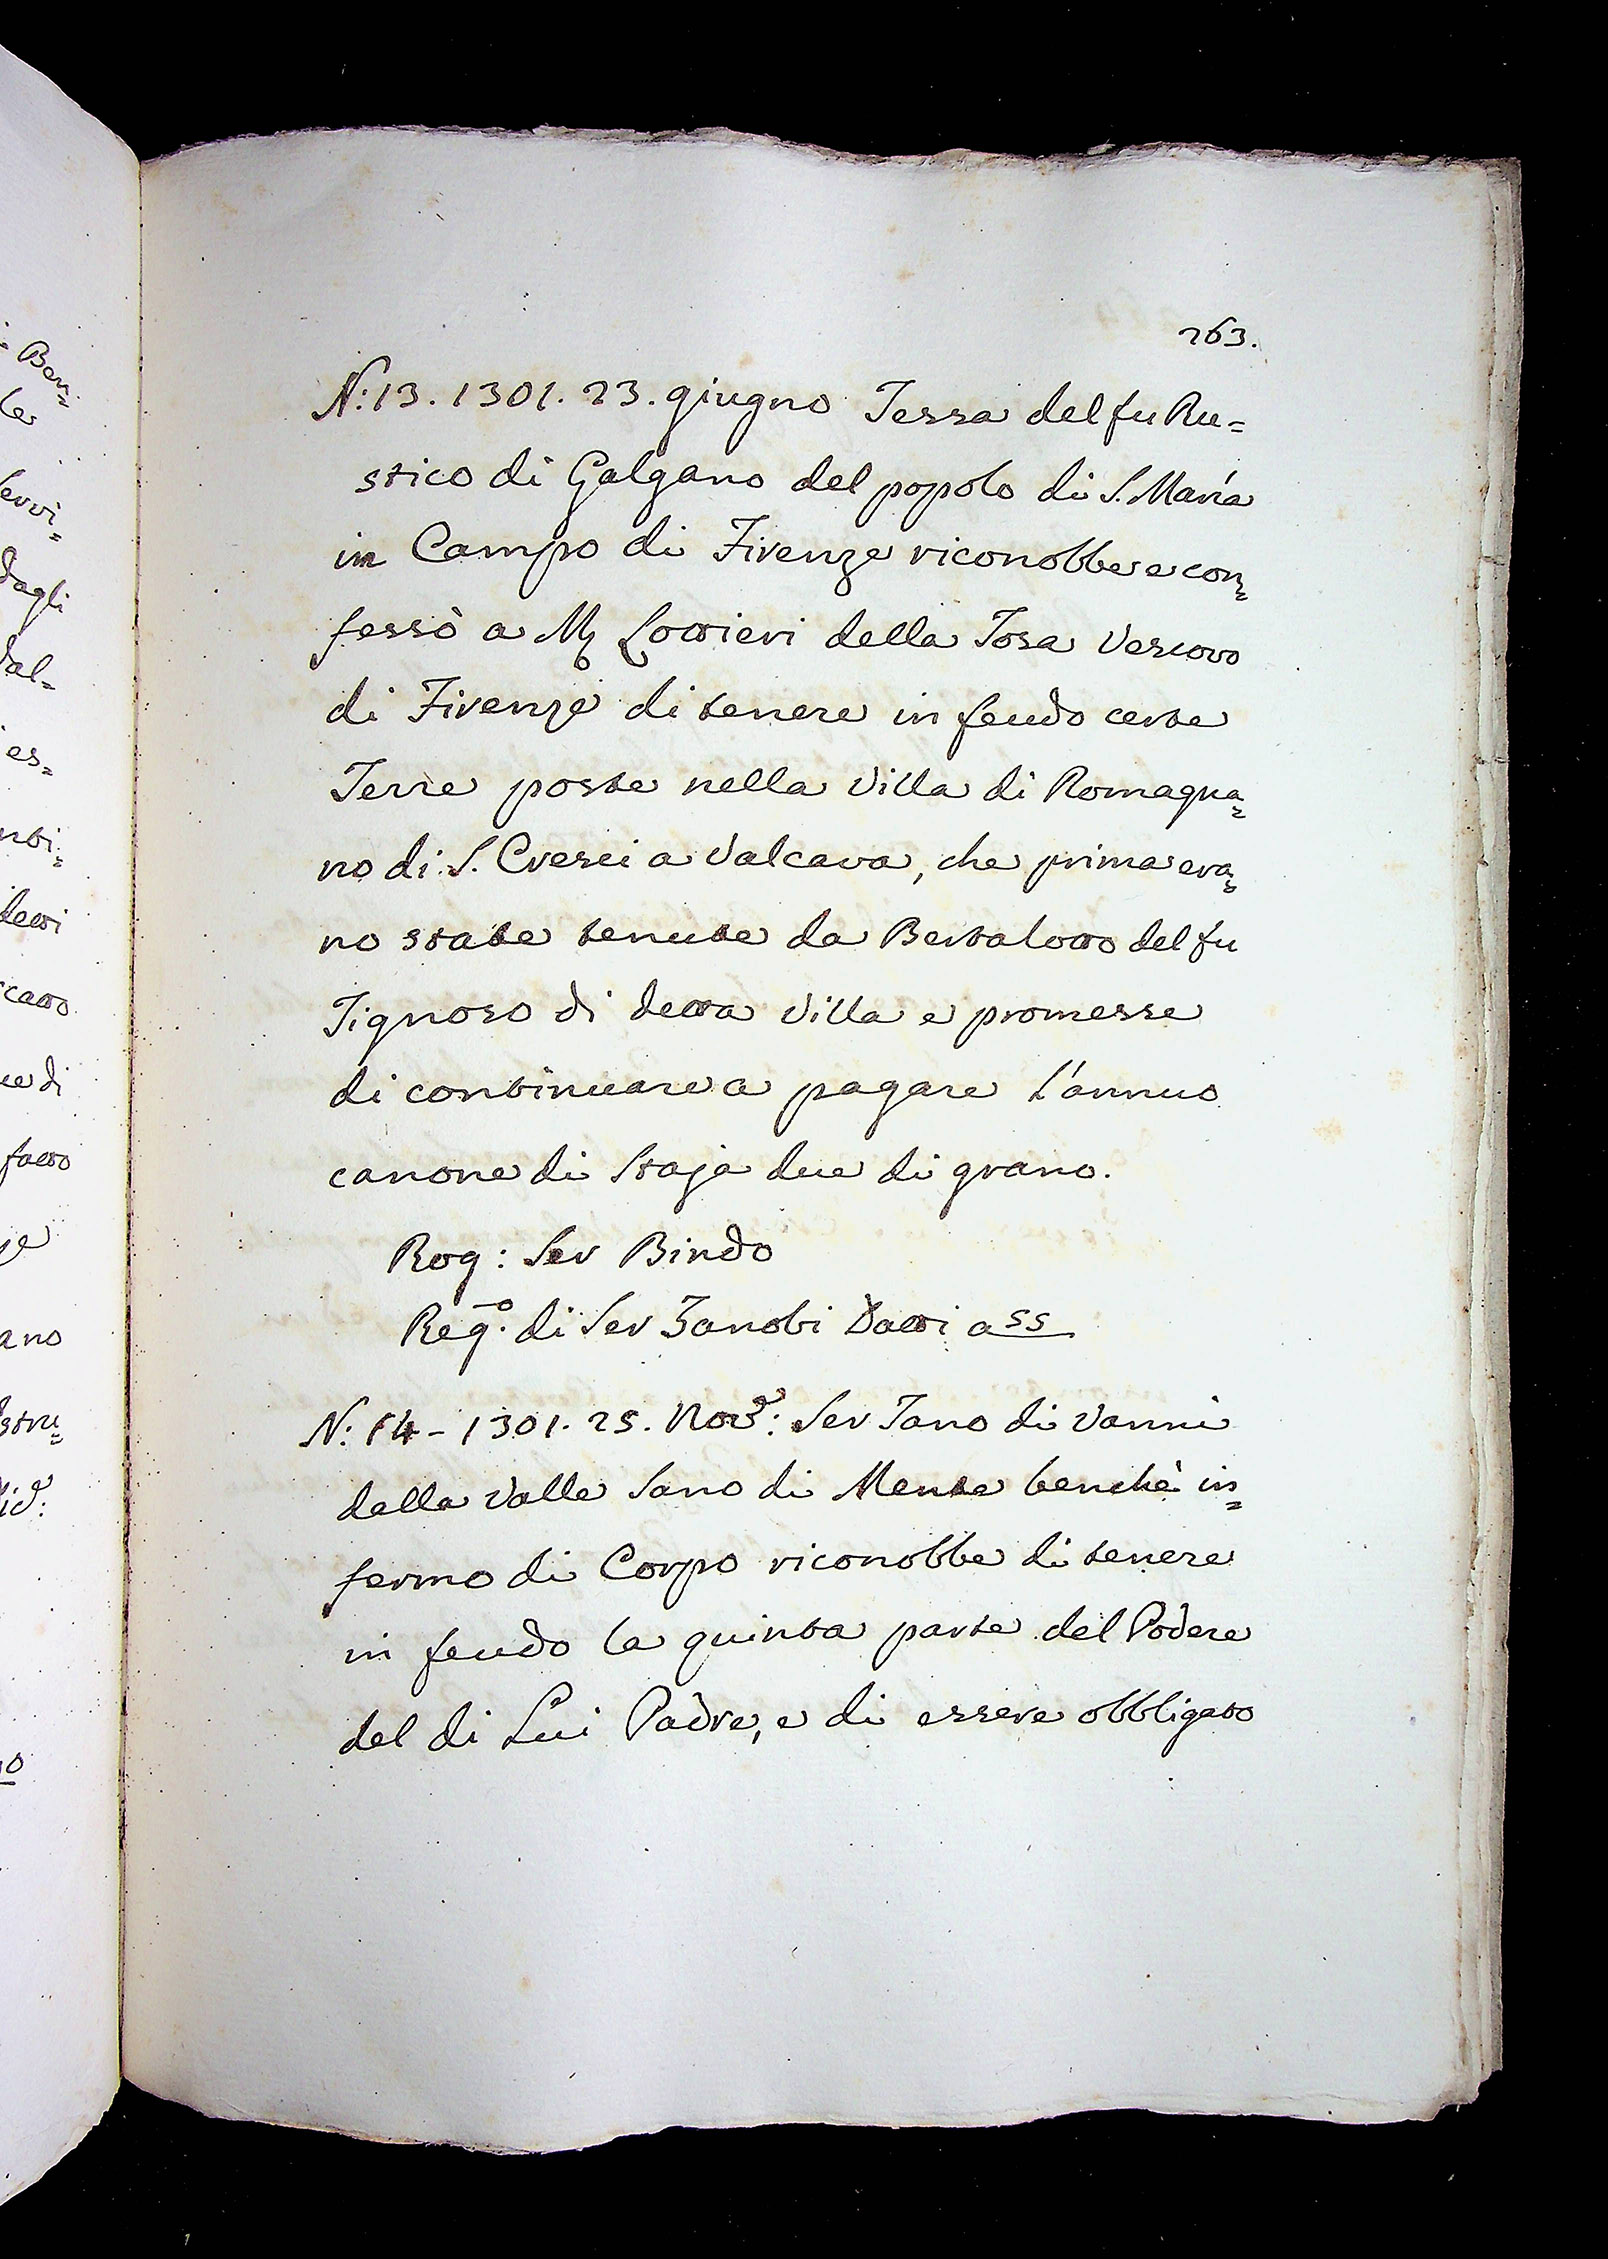 Ben=
le
servi=
dagli
dal=
es=
nti=
detti
cato
ue di
fatto
je
ano
stru=
no
263.
N: 13. 1301. 23. giugno Tessa del fu Ru=
stico di Galgano del popolo di S. Maria
in Campo di Firenze riconobbe e con=
fessò a M Lottieri della Tosa Vescovo
di Firenze di tenere in feudo certe
Terre poste nella Villa di Romagna=
no di S. Cresci a Valcava, che prima era=
no state tenute da Bertalotto del fu
Tignoso di detta Villa e promesse
di continuare a pagare l'annuo
canone di Staja due di grano.
Rog: Ser Bindo
Reg.o di Ser Zanobi Datti a 55
N: 14 - 1301. 25. Nove: Ser Tano di Vanni
della Valle Sano di Mente benchè in=
fermo di Corpo riconobbe di tenere
in feudo la quinta parte del Podere
del di Lui Padre, e di essere obbligato